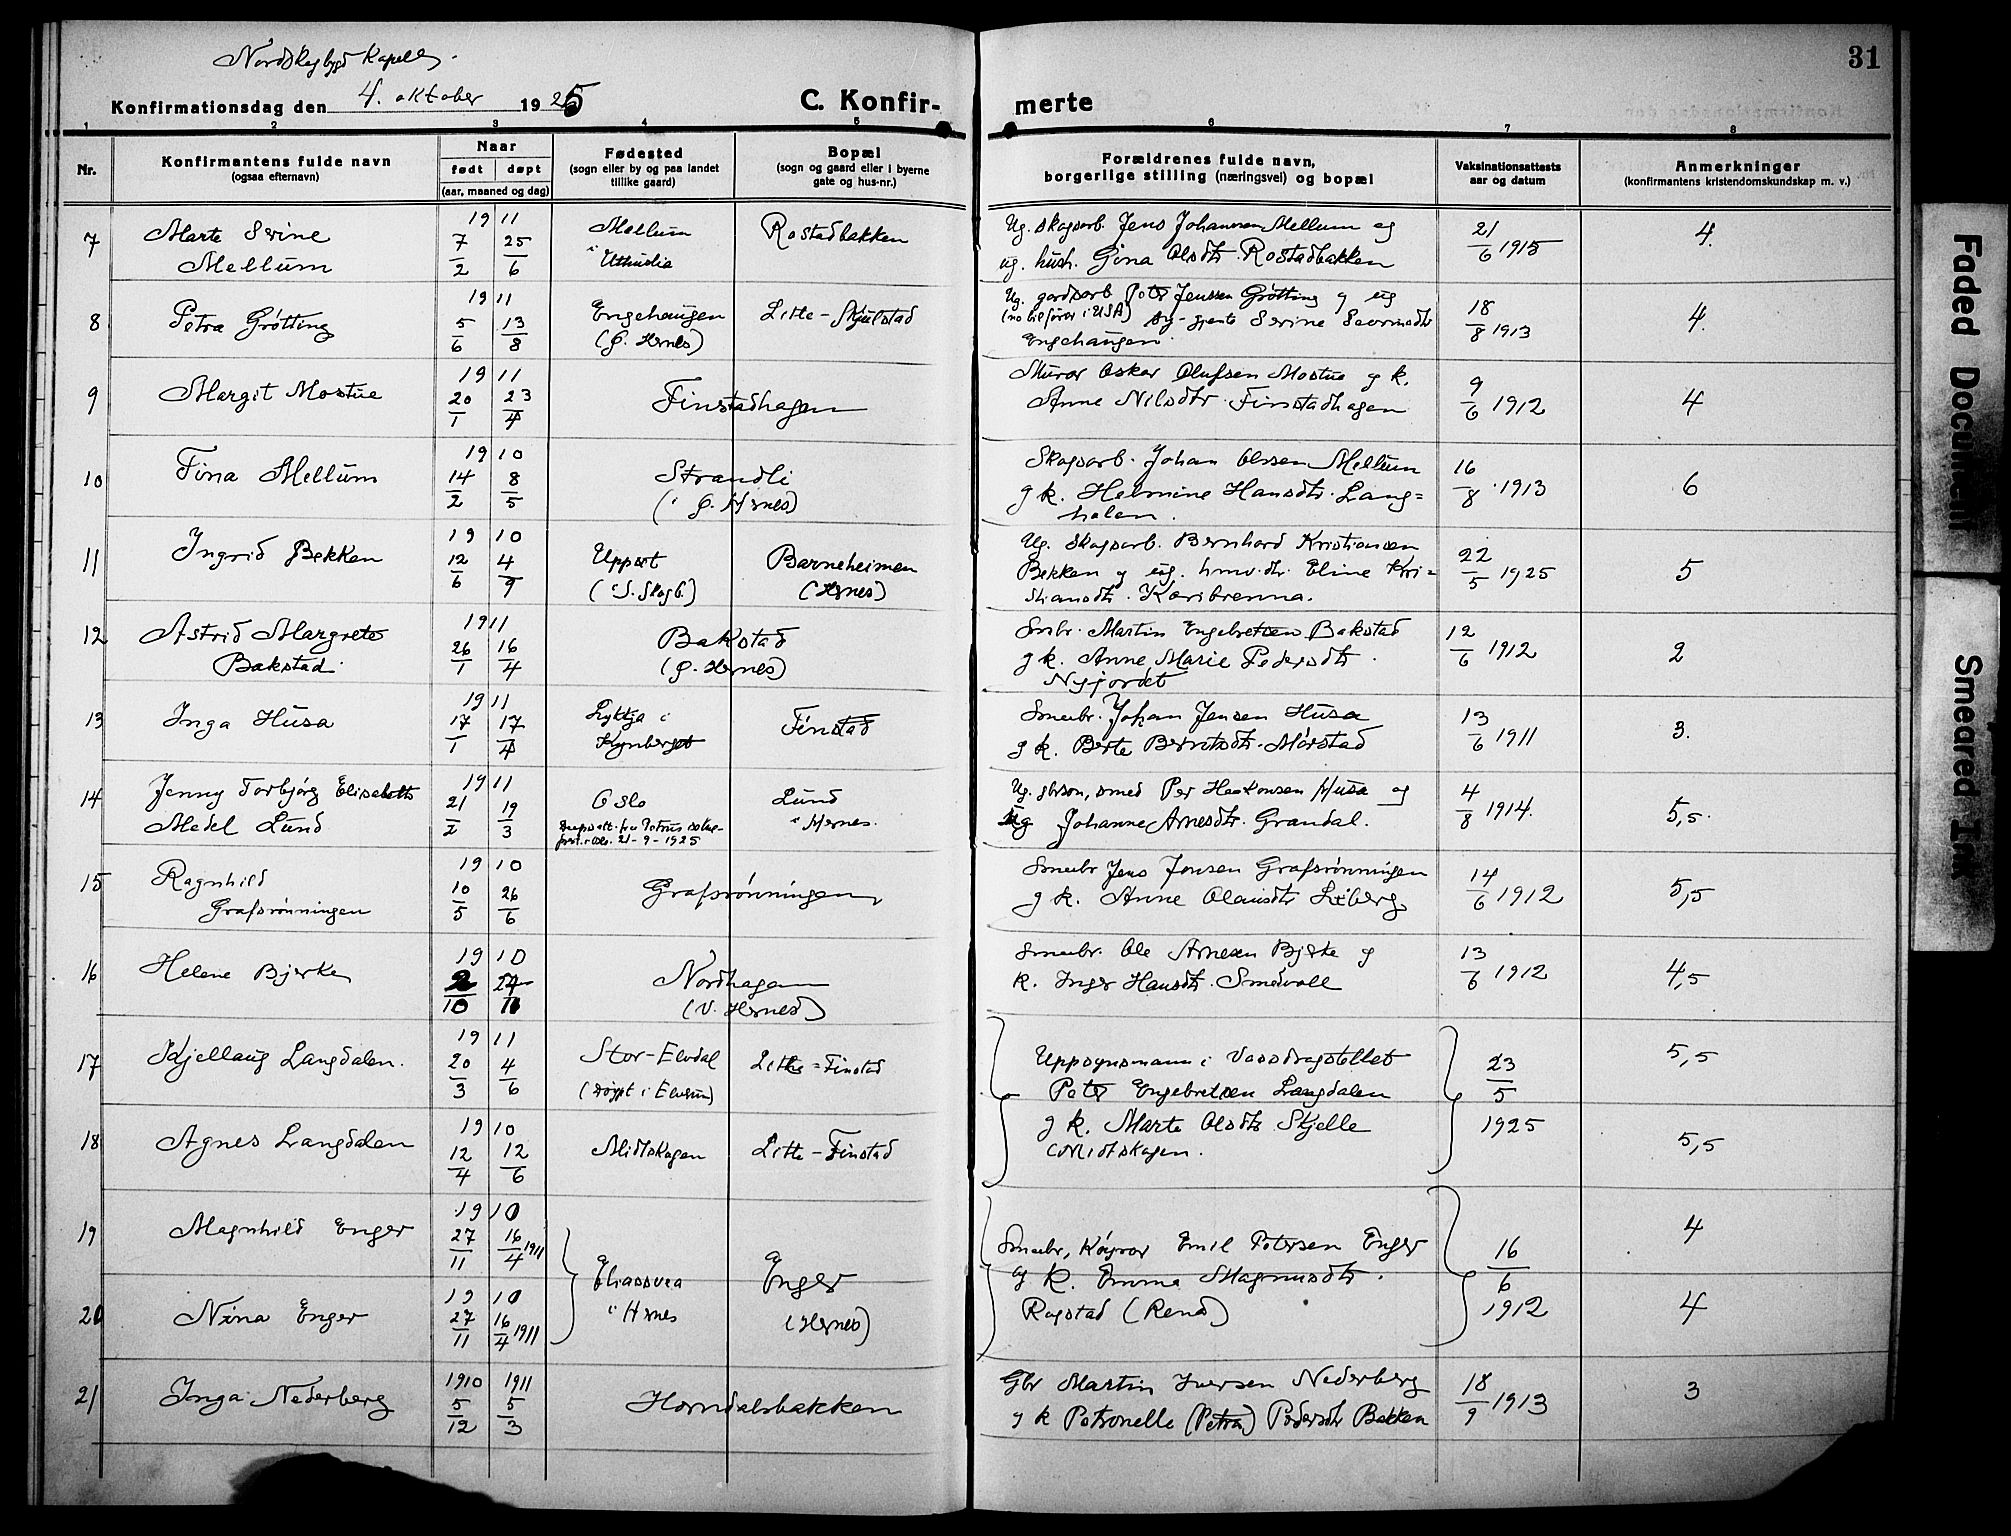 Nordskogbygd Kapell.
31
Konfirmationsdag den 4. oktober 1925
C. Konfir-
merte
1 2 3 4 5 6 7 8
Nr.
Konfirmantens fulde navn
(ogsaa efternavn)
Naar
født døpt
(aar, maaned og dag)
Fødested
(sogn eller by og paa landet
tillike gaard)
Bopæl
(sogn og gaard eller i byerne
gate og hus-nr.)
Forældrenes fulde navn,
borgerlige stilling (næringsvei) og bopæl
Vaksinationsattests
aar og datum
Anmerkninger
(konfirmantens kristendomskundskap m. v.)
7 Marte Serine Mellum
1911 7/2 25/6
Mellum i
Rostadbakken
Ug. skogsarb. Jens Johannesen Mellum og
ug. hush. Gina Olsdtr. Rostadbakken
21/6 1915
4.
8 Petra Grøtting
1911 5/6 13/8
Engehaugen (Ø. Hernes)
Litle-Skjulstad
Ug. gardsarb. Peter Jenssen Grøtting og ug
(no tilfører i USA) Serine
Engehaugen
18/8 1913
4.
9 Margit Mostue
1911 20/1 23/4
Finstadhagen
Murar Oskar Olufsen Mostue og k.
Anne Nilsdtr. Finstadhagen
9/6 1912
4
10 Fina Mellum
1910 14/2 8/5
Strandli
(i Ø. Hernes)
Skogsarb. Johan Olssen Mellum
og k. Helmine Hansdtr. Lang=
holen.
16/8 1913
6
11 Ingrid Bekken
1910 12/6 4/9
Uppset
(i S. Skogb.)
Barneheimen
(Hernes)
Ug. Skogsarb. Bernhard Kristiansen
Bekken og ug. hmv. dtr. Eline Kri=
stiansdtr. Karibrenna.
22/5 1925
5
12 Astrid Margrete
Bakstad
1911 26/1 16/4
Bakstad
(Ø. Hernes)
Smbr. Martin Engebretsen Bakstad
og k. Anne Marie Pedersdtr.
Nyjordet
12/6 1912
2
13 Inga Husa
1911 17/1 17/4
Lykkja i
Kynberget
Finstad
Smbr. Johan Jensen Husa
og k. Berte Berntsdtr. Mørstad
13/6 1911
3.
14 Jenny Torbjørg Elisabeth
Medel Lund
1911 21/2 19/3
Oslo
21-9-1925
Lund
i Hernes.
Ug. gbrson, smed Per Haakonsen Husa og
ug Johanne Arnesdtr. Grandal.
4/8 1914.
5,5.
15 Ragnhild
Grafsrønningen
1910 10/5 26/6
Grafsrønningen
Smbr Jens Jonsen Grafsrønningen
og k. Anne Olausdtr Liberg
14/6 1912
5,5
16 Helene Bjerke
1910 2/10 27/11
Nordhagen
(V. Hernes)
Smbr. Ole Arnesen Bjerke og
k. Inger Hansdtr. Smedvoll
13/6 1912
4,5
17 Kjellaug Langdalen.
1911 20/3 4/6
Stor-Elvdal
(døypt i Elverum)
Litle=Finstad
Uppsynsmann i Vassdragstellet
Peter Engebretsen Langdalen
og k. Marte Olsdtr. Skjelle
Midtskogen.
23/5
1925
5,5
18 Agnes Langdalen
1910 12/4 12/6
Midtskogen
Litle-Finstad
5,5
19 Magnhild Enger
1910 27/11 16/4 1911
Eliassvea
i Hernes
Enger
(Hernes)
Smbr, Køyrar Emil Petersen Enger
og k. Emma Magnusdtr.
Rogstad (Rena)
16/6
1912
4
20 Nina Enger
1910 27/11 16/4 1911
4
21 Inga Nederberg
1910 5/12 1911 5/3
Horndalsbakken
Gbr Martin Iversen Nederberg
og k Petronelle (Petra) Pedersdtr Bakken
18/9 1913
3
Faded Document
Smeared Ink